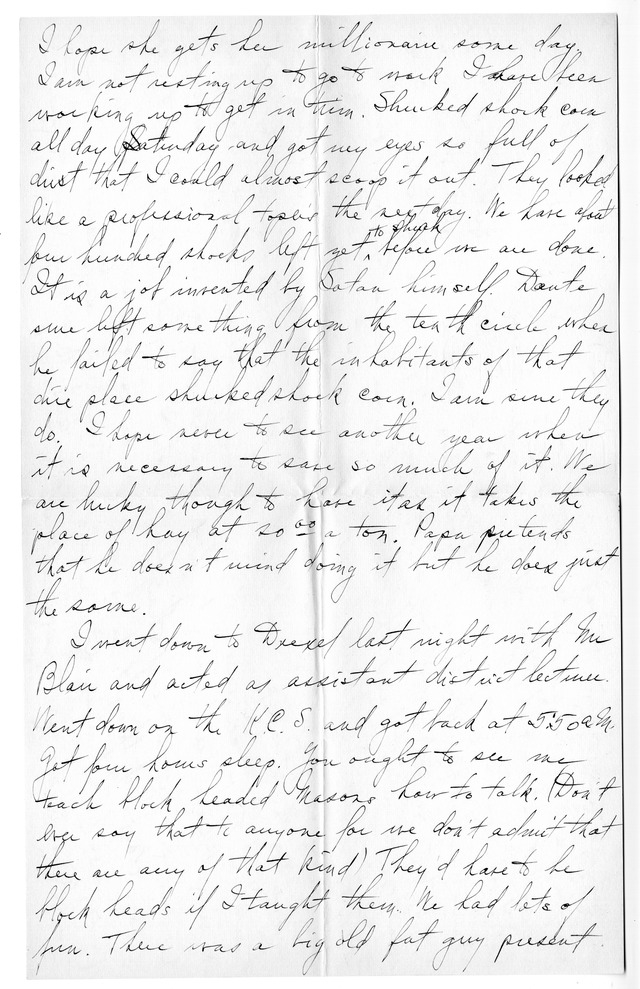 I hope she gets her millionaire some day.
I am not resting up to go to work I have been
working up to get in trim. Shucked shock corn
all day Saturday and got my eyes so full of
dust that I could almost scoop it out. They looked
like a professional toper's the next day. We have about
four hundred shocks left yet, to shuck before we are done.
It is a job invented by Satan himself. Dante
sure left something from the tenth circle when
he failed to say that the inhabitants of that
dire place shucked shock corn. I am sure they
do. I hope never to see another year when
it is necessary to save so much of it. We
are lucky though to have it as it takes the
place of hay at 20 00 a ton. Papa pretends
that he doesn't mind doing it but he does just
the same.
I went down to Drexel last night with Mr
Blair and acted as assistant district lecturer.
Went down on the K.C.S. and got back at 5:50 a.M.
Got four hours sleep. You ought to see me
teach block headed Masons how to talk. (Don't
ever say that to anyone for we don't admit that
there are any of that kind) They'd have to be
block heads if I taught them. We had lots of
fun. There was a big old fat guy present